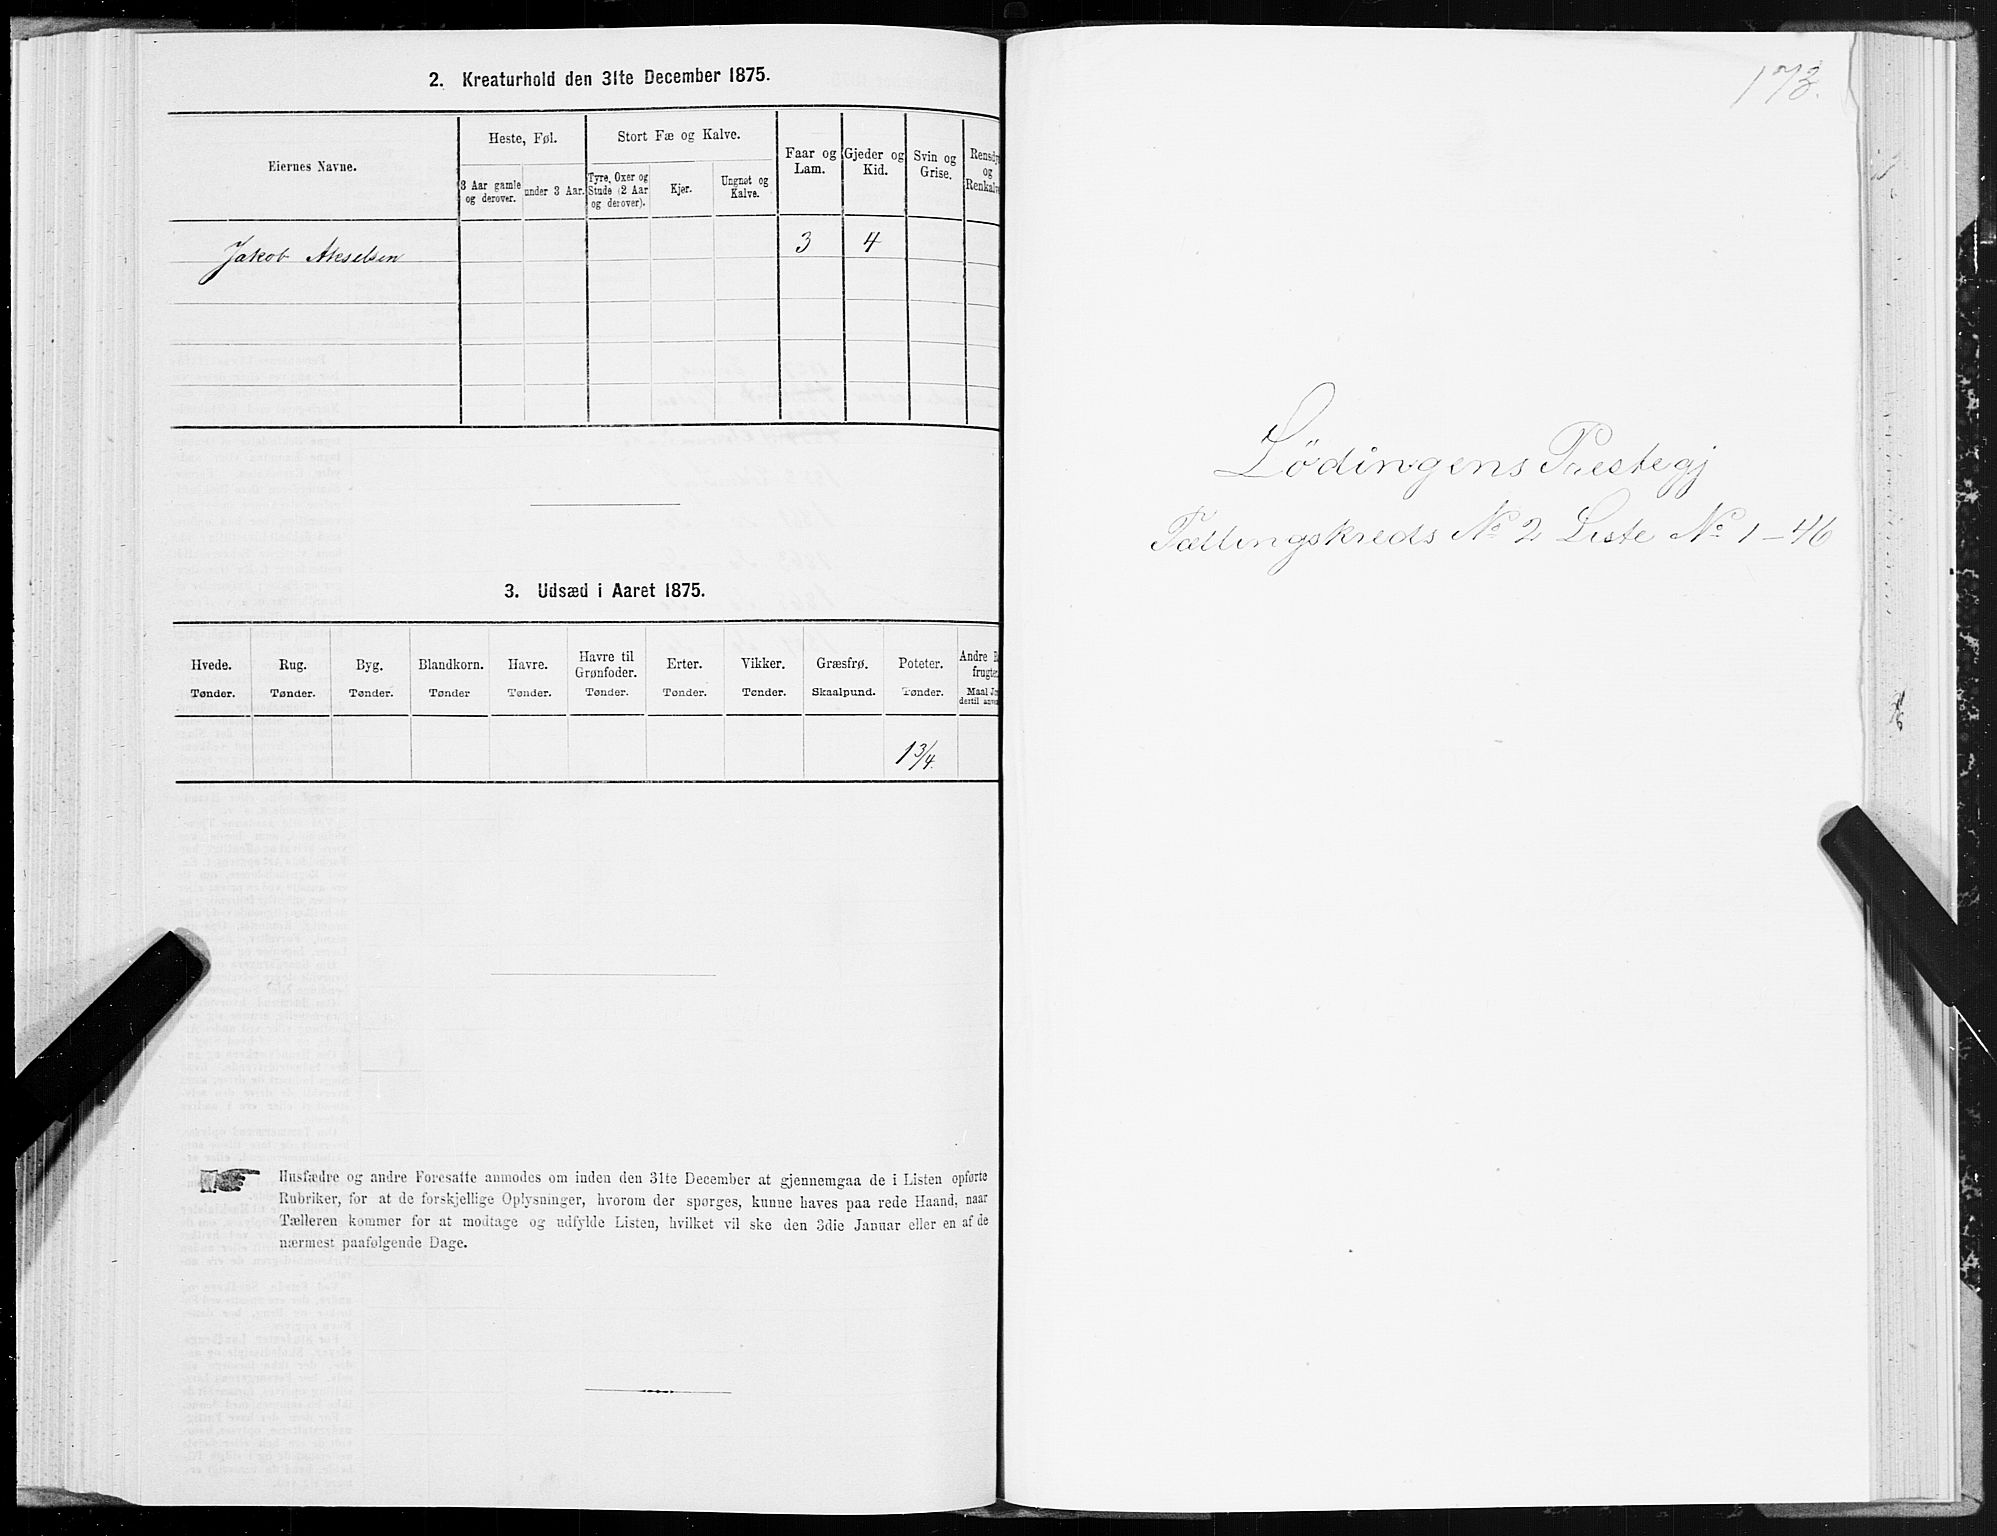 2. Kreaturhold den 31te December 1875.
Eiernes Navne.
Heste, Føl.
Stort Fæ og Kalve.
Faar og Lam.
Gjeder og Kid.
Svin og Grise.
og
3 Aar gamle og derover.
under 3 Aar.
Tyre, Oxer og Stude (2 Aar og derover).
Kjør.
Ungnøt og Kalve.
Jakob Akselsen 3 4
3. Udsæd i Aaret 1875.
Hvede. Rug. Byg. Blandkorn. Havre. Havre til Grønfoder. Erter. Vikker. Græsfrø. Poteter. Andre
Tønder. Tønder. Tønder. Tønder Tønder. Tønder. Tønder. Tønder. Skaalpund. Tønder. Maal
1 3/4.
Husfædre og andre Foresatte anmodes om inden den 31te December at gjennemgaa de i Listen opførte
Rubriker, for at de forskjellige Oplysninger, hvorom der spørges, kunne haves paa rede Haand, naar
Tælleren kommer for at modtage og udfylde Listen, hvilket vil ske den 3die Januar eller en af de
nærmest paafølgende Dage.
173.
Lødingens Prestegj
Tællingskreds No 2 Liste No 1-46